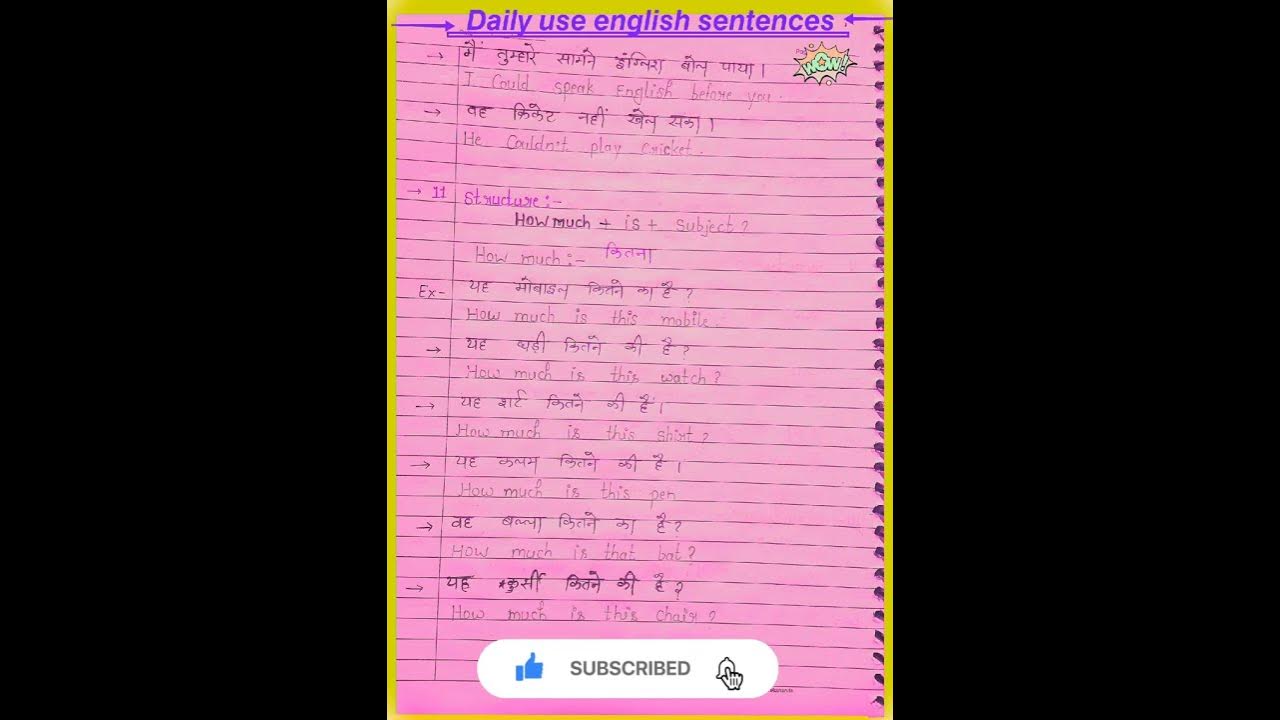 Daily use english sentences
→ मैं तुम्हारे सामने इंग्लिश बोल पाया।
I Could speak English before you.
→ वह क्रिकेट नहीं खेल सका।
He Couldn't play cricket.
→ 11 Structure:-
How much + is + subject?
How much:- कितना
Ex- यह मोबाइल कितने का है?
How much is this mobile.
→ यह घड़ी कितने की है?
How much is this watch?
→ यह शर्ट कितने की हैं।
How much is this shirt?
→ यह कलम कितने की है।
How much is this pen
→ वह बल्ला कितने का है?
How much is that bat?
→ यह *कुर्सी कितने की है?
How much is this chair?
WOW!
SUBSCRIBED